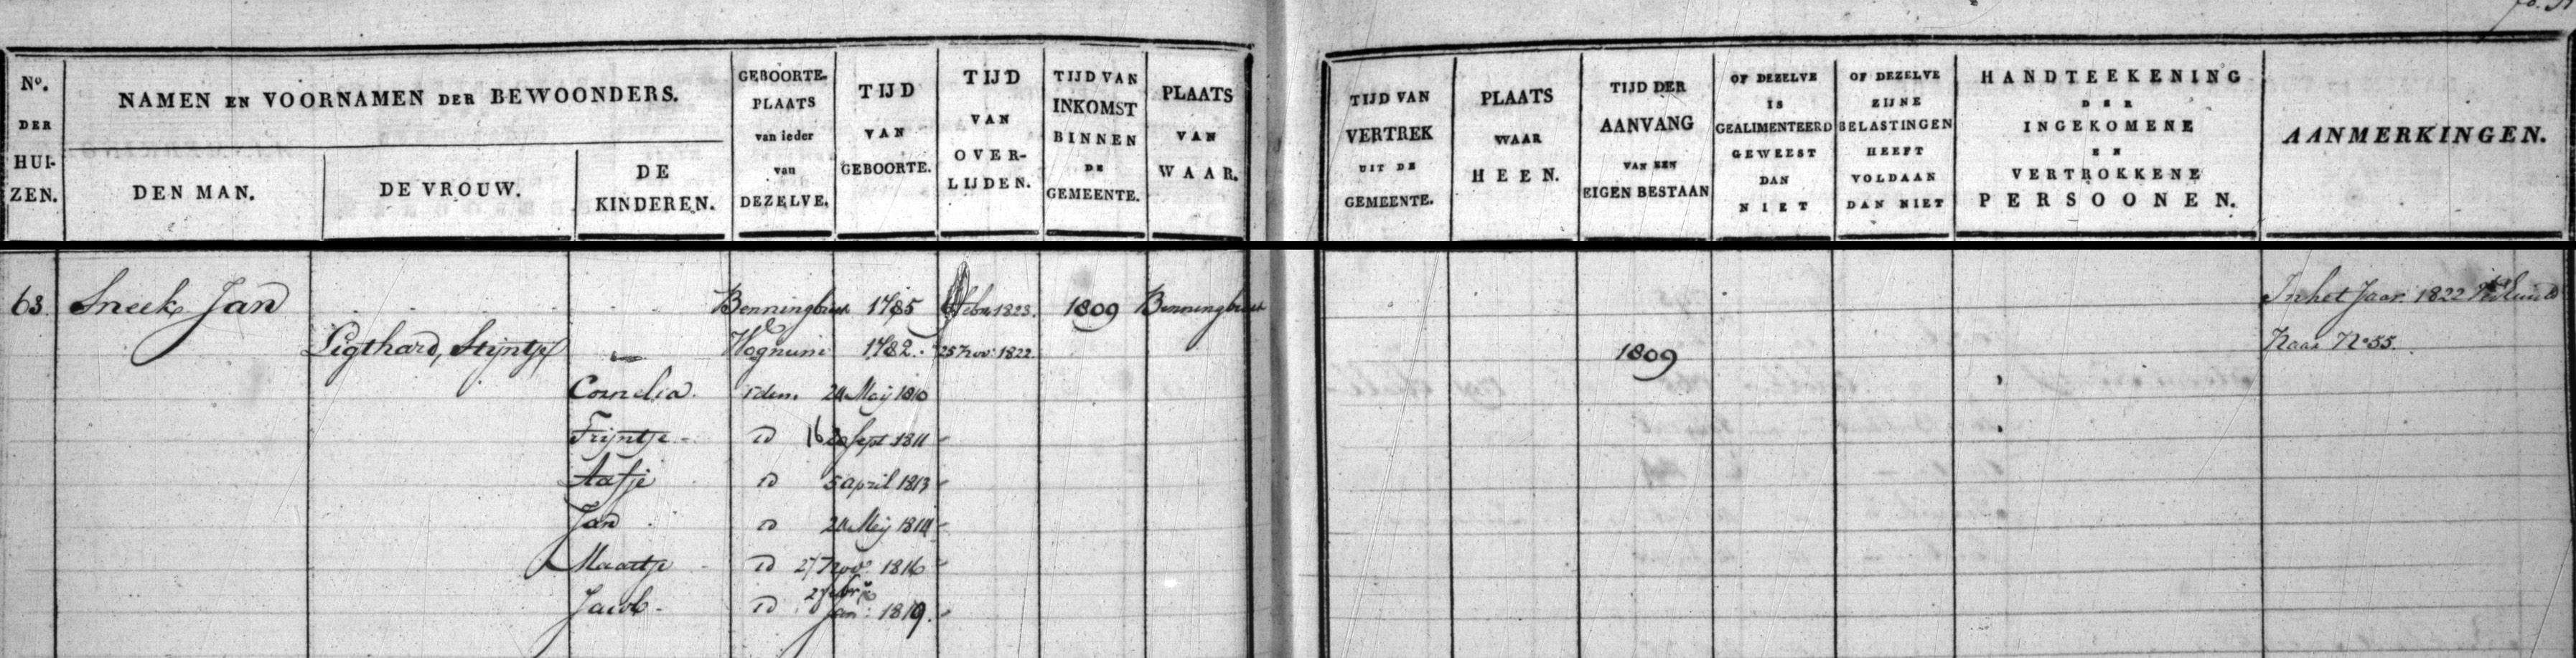 No. DER HUI- ZEN.
NAMEN EN VOORNAMEN DER BEWOONDERS.
DEN MAN.
DE VROUW.
DE KINDEREN.
GEBOORTE- PLAATS van ieder van DEZELVE.
TIJD VAN GEBOORTE.
TIJD VAN OVER- LIJDEN.
TIJD VAN INKOMST BINNEN DE GEMEENTE.
PLAATS VAN WAAR.
TIJD VAN VERTREK UIT DE GEMEENTE.
PLAATS WAAR HEEN.
TIJD DER AANVANG VAN EEN EIGEN BESTAAN
OF DEZELVE IS GEALIMENTEERD GEWEEST DAN NIET
OF DEZELVE ZIJNE BELASTINGEN HEEFT VOLDAAN DAN NIET
HANDTEEKENING DER INGEKOMENE EN VERTROKKENE PERSOONEN.
AANMERKINGEN.
63 Sneek Jan Benningbroek 1785 Febr 1823. 1809 Benningbroek In het Jaar 1822
Ligthard, Stijntje Wognum 1782. 25 Nov: 1822 1809 Naar No 55.
Cornelia. idem Meij 1810
Trijntje id 16 Sept 1811
Aafje id 5 april 1813
Jan id Meij 1814
Maartje id 27 Nov: 1816
Jacob id 27 Jan: 1819.